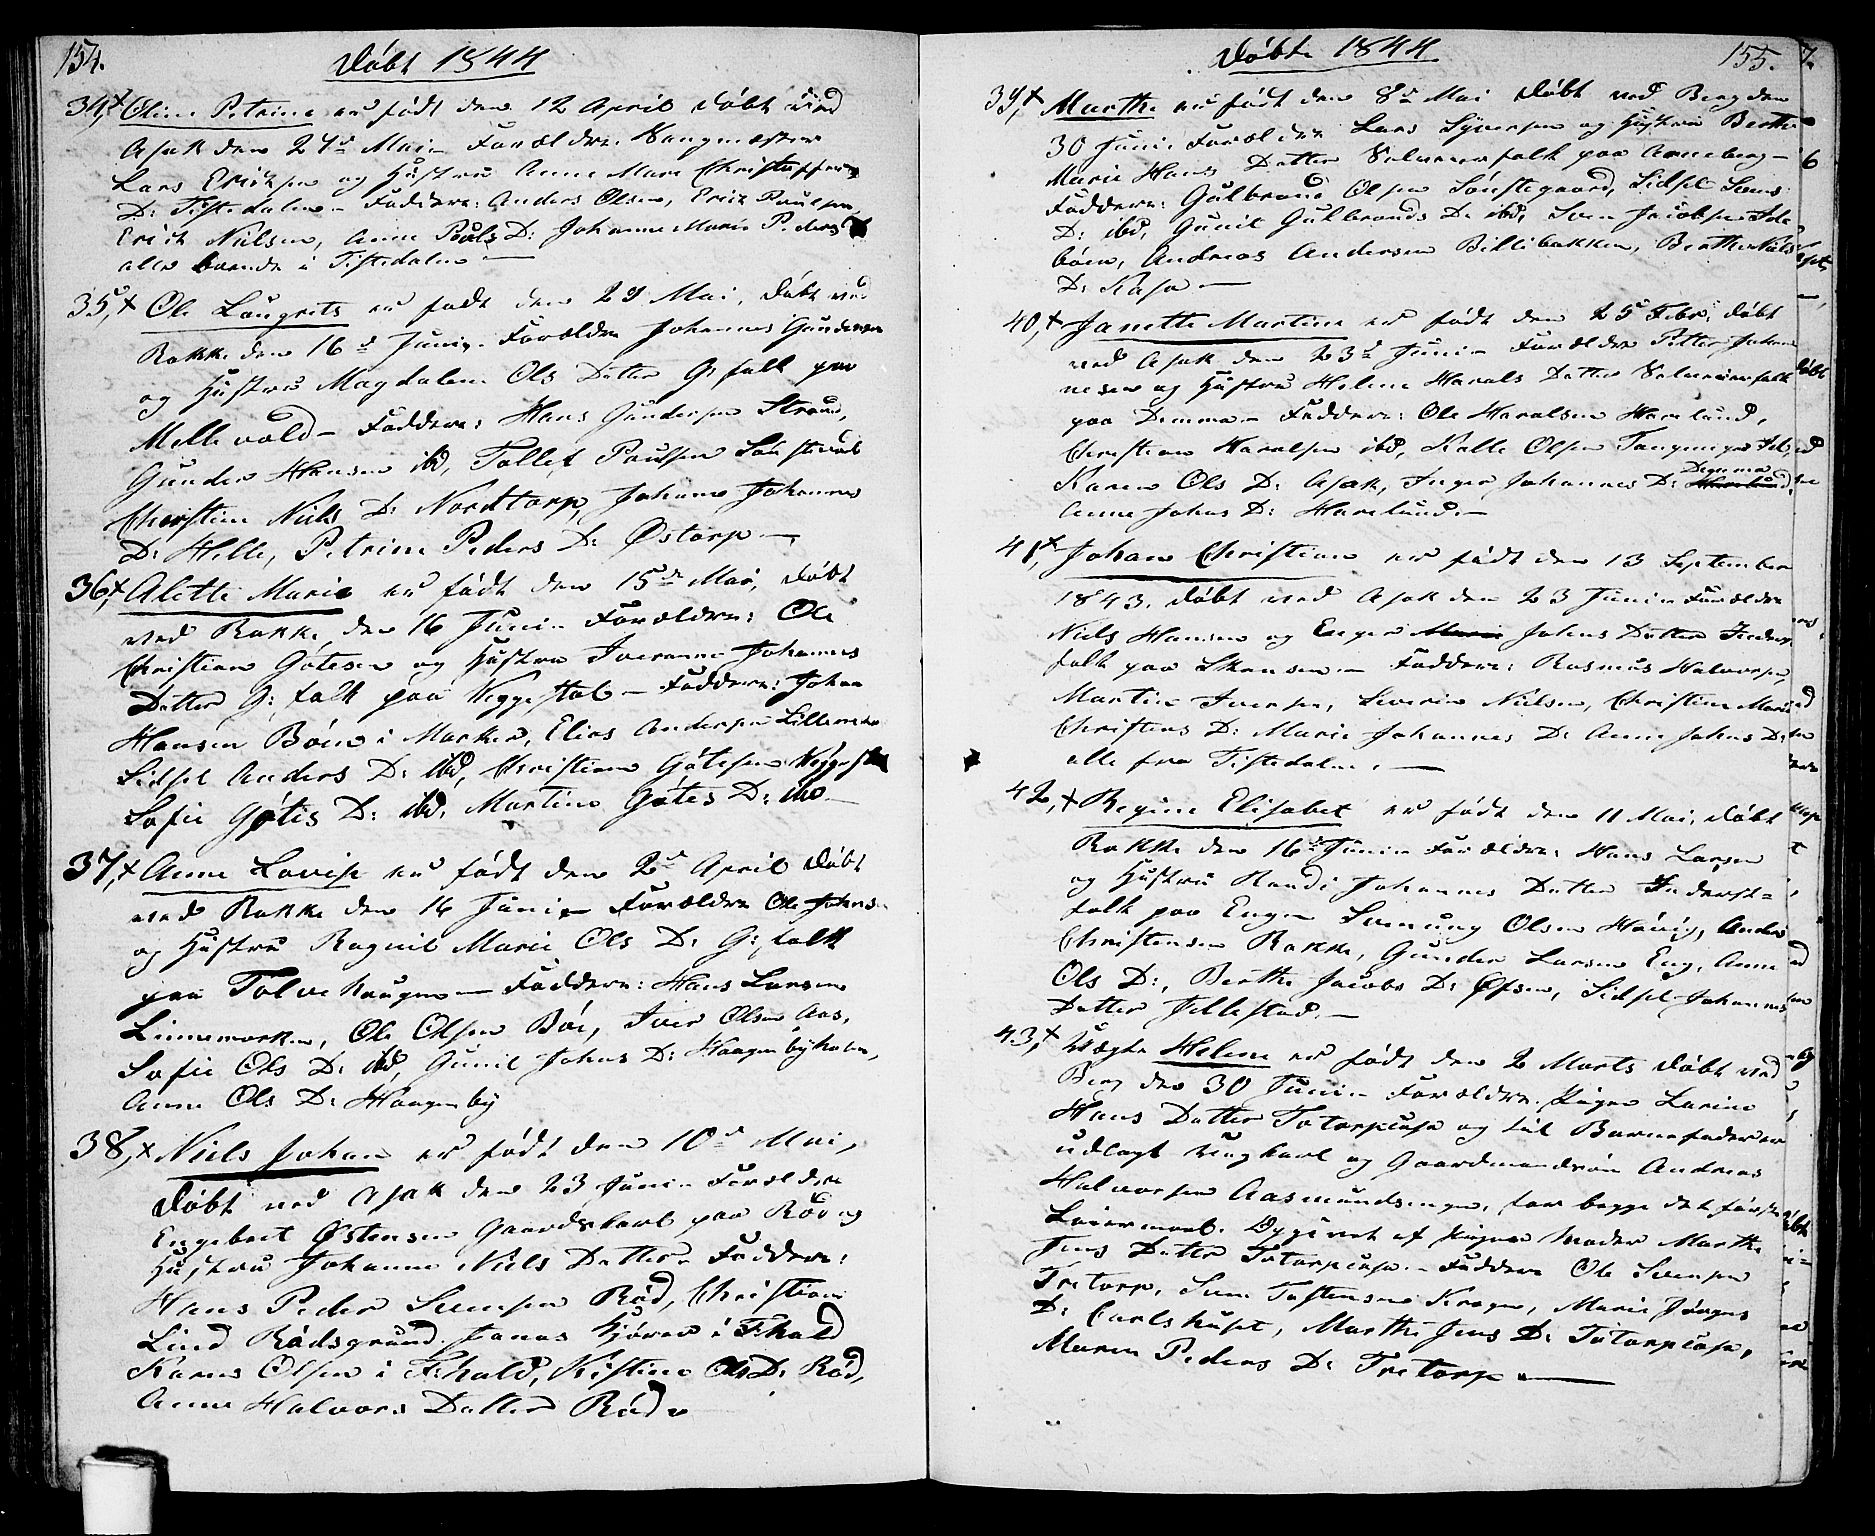 154.
Döbt 1844
34,+ Oline Petrine er født den 12 April døbt ved
Asak den 27de Mai – Forældre: Vangmester
Lars Ericksen og Hustru Anne Mari Christoffers
D: Tistedalen – Faddere: Anders Olsen, Erick Paulsen,
Erick Nielsen, Anne Pouls D: Johanne Marie Peders D
alle boende i Tistedalen –
35,+ Ole Laugrits er født den 29 Mai, døbt ved
Rokke den 16de Juni. Forældre Johannes Gundersen
og Hustru Magdalene Ols Datter G: folk paa
Mellevold – Faddere: Hans Gundersen Strand,
Gunder Hansen ibd, Tollef Poulsen
Christine Niels D: Nordtorp, Johanne Johannes
D: Helle, Petrine Peders D: Östorp –
36,+ Alette Marie er født den 15de Mai, døbt
ved Rokke den 16 Juni – Forældre: Ole
Christian Götesen og Hustru Iveranne Johannes
Datter G: folk paa Veggestøl – Faddere: Johan
Hansen Böen i Marker, Elias Andersen
Sidsel Anders D: ibd, Christian Götesen
Sofie Götes D: ibd. Martine Götes D: ibd –
37,+ Anne Lovise er født den 2de April døbt
ved Rokke den 16 Juni – Forældre Ole Johns.
og Hustru Ragnil Marie Ols D: G: folk
paa Tolvehaugen – Faddere: Hans Larsen
Linnemarken, Ole Olsen Böe, Iver Olsen Aas,
Sofie Ols D: ibd, Gunil Johns D: Haagenbyholen,
Anne Ols D: Haagenby
38,+ Niels Johan er født den 10de Mai,
døbt ved Asak den 23 Juni – Forældre
Engebret Østensen Gaardskarl paa Röd og
Hustru Johanne Niels Datter – Faddere:
Hans Peder Svensen Röd, Christian
Lind Rödsgrund. Jonas Kjörer i F:hald
Karen Olsen i F:hald, Kistine Ols D: Röd,
Anne Halvors Datter Röd –
Döbte 1844
155.
39,+ Marthe er født den 8de Mai døbt ved Berg den
30 Juni. Forældre Lars Syversen og Hustru Berthe
Marie Hans Datter Selveierfolk paa Arneberg –
Faddere: Gulbrand Olsen Sönstegaard, Sidsel Lars
D: ibd, Gunil Gulbrands D: ibd, Sven Jacobsen
böen, Andreas Andersen Billibakken, Berthe Niels
D: Kasa –
40,+ Janette Martine er født den 25 Febr. døbt
ved Asak den 23de Juni – Forældre Petter Johan
nesen og Hustru Helene Harals Datter Selveierfolk
paa Demma – Faddere: Ole Haralsen Harelund,
Christian Haralsen ibd, Kalle Olsen
Karen Ols D: Asak, Inger Johannes D: Demma
Anne Johns D: Harelund –
41,+ Johan Christian er født den 13 September
1843. døbt ved Asak den 23 Juni – Forældre
Niels Hansen og Enger Marie Johns Datter Inderst
folk paa Skansen – Faddere: Rasmus Halvorsen,
Martin Iversen, Severin Nielsen, Christine Marie
Christens D: Marie Johannes D: Anne Johns D:
alle fra Tistedalen. –
42,+ Regine Elisabet er født den 11 Mai, døbt
Rokke den 16de Juni – Forældre: Hans Larsen
og Hustru Randi Johannes Datter Inderst=
folk paa Engen Svenung Olsen Hövig, Anders
Christensen Rokke, Gunder Larsen Eng, Anne
Ols D:, Berthe Jacobs D: Ofsen, Sidsel Johannes
Datter Jellestad. –
43,+ Uægte Helene er født den 2 Marts døbt ved
Berg den 30 Juni – Forældre. Pigen Larine
Hans Datter Totorpiasa og til Barnefader er
udlagt Ungkarl og Gaardmandsön Andreas
Halvorsen Aasmundsengen, for begge det første
Leiermaal. Opgivet af Pigens Moder Marthe
Jens Datter Totorpiasa – Faddere Ole Svensen
Tretorp, Sven Tostensen Kragen, Marie Jörgens
D: Carlshuset, Marthe Jens D: Totorpiasa,
Maren Peders D: Tretorp –